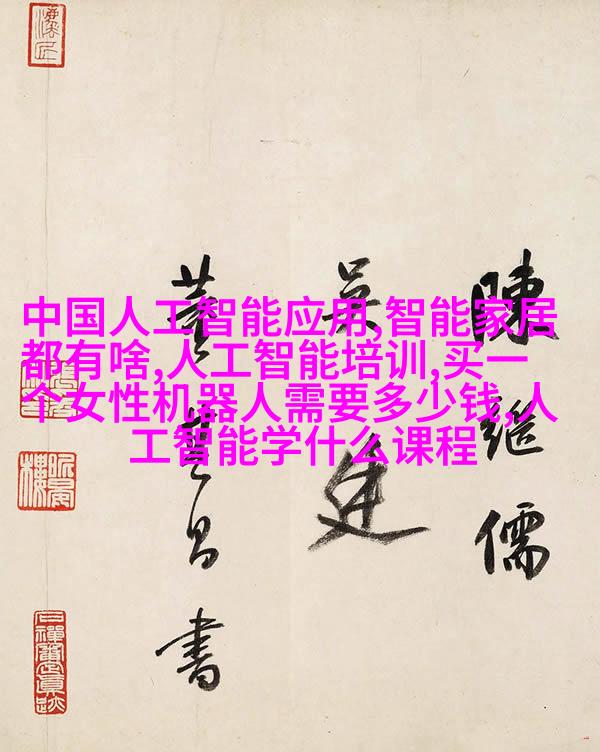 中国人工智能应用,智能家居
都有啥,人工智能培训,买一
个女性机器人需要多少钱,人
工智能学什么课程
陳繼儒
吴廷
董其昌書